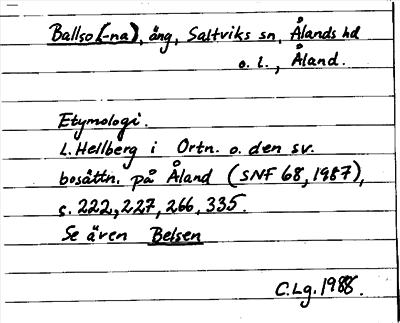 Ballso(-na), äng, Saltviks sn, Ålands hd
o. l., Åland.
Etymologi.
L. Hellberg i Ortn. o. den sv.
bosättn. på Åland (SNF 68, 1987),
s. 222, 227, 266, 335.
Se även Belsen
C.Lg. 1988.